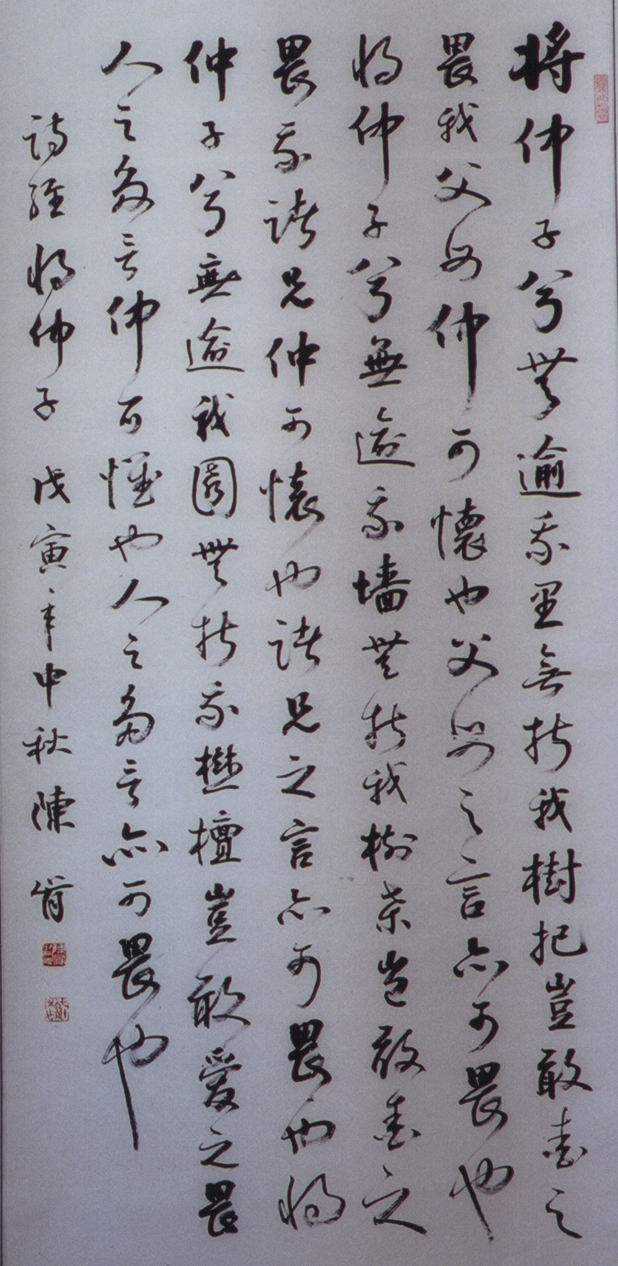 将仲子兮無逾我里無折我樹杞豈敢愛之
畏我父母仲可懷也父母之言亦可畏也
将仲子兮無逾我墻無折我樹桑豈敢愛之
畏我諸兄仲可懷也諸兄之言亦可畏也将
仲子兮無逾我園無折我樹檀豈敢愛之畏
人之多言仲可懷也人之多言亦可畏也
詩經将仲子 戊寅年中秋 陳